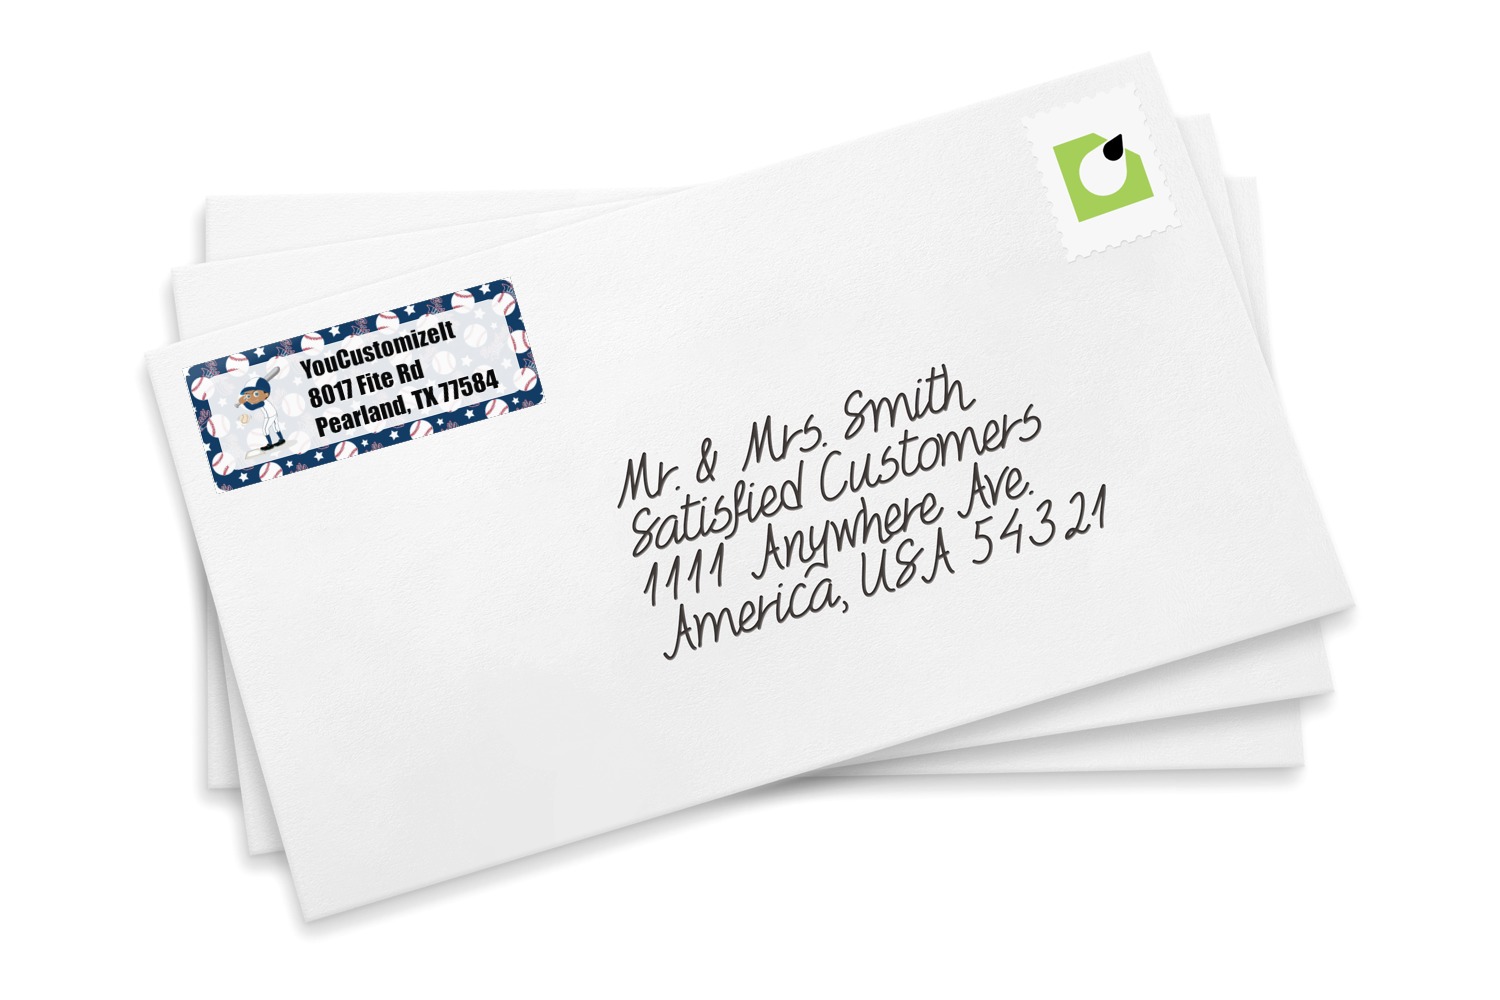 YouCustomizeIt
8017 Fite Rd
Pearland, TX 77584
Mr. & Mrs. Smith
Satisfied Customers
1111 Anywhere Ave.
America, USA 54321